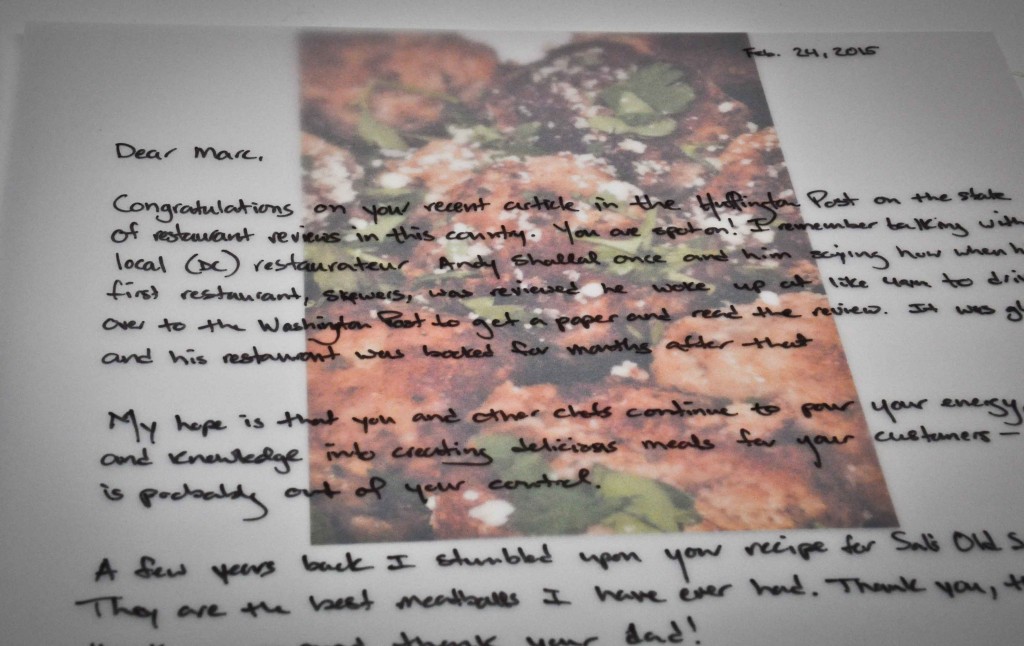 Feb. 24, 2015
Dear Marc,
Congratulations on your recent article in the Huffington Post on the state
of restaurant reviews in this country. You are spot on! I remember talking with
local (DC) restaurateur Andy Shallal once and him saying how when h
first restaurant, Skewers, was reviewed he woke up at like 4am to driv
over to the Washington Post to get a paper and read the review. It was gl
and his restaurant was booked for months after that
My hope is that you and other chefs continue to pour your energy
and knowledge into creating delicious meals for your customers –
is probably out of your control.
A few years back I stumbled upon your recipe for Sal's Old S
They are the best meatballs I have ever had. Thank you, t
thank your dad!